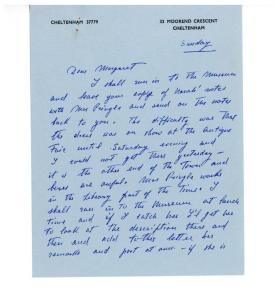 CHELTENHAM 37779
33 MOOREND CRESCENT
CHELTENHAM
Sunday
Dear Margaret
I shall run in to the Museum
and leave your copy of notes
with Mrs Pringle and send on the notes
back to you. The difficulty was that
the dress was on show at the Antique
Fair until Saturday evening and
I could not get there yesterday -
it is the other end of the Town and
buses are awful. Mrs Pringle works
in the library part of the time. I
shall run in to the Museum at lunch
time and if I catch her I'd get her
to look at the description there and
then and add to this letter her
remarks and post at once - if she is